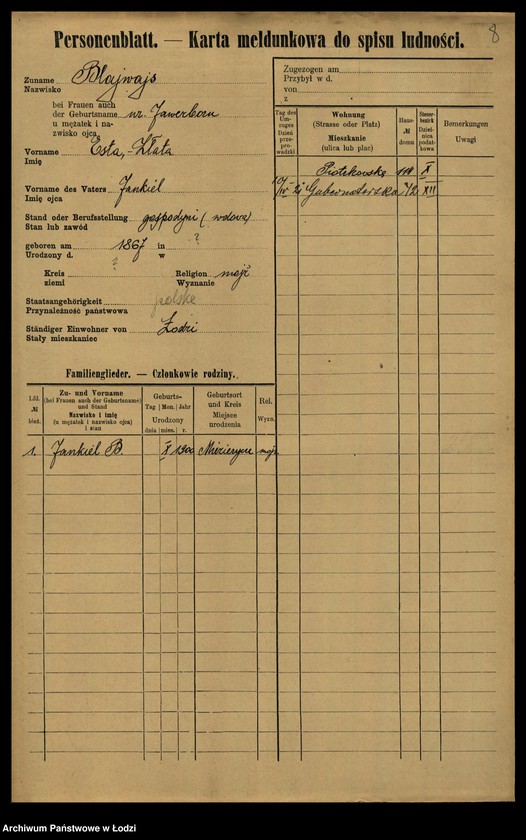 8
Personenblatt. — Karta meldunkowa do spisu ludności.
Zuname
Nazwisko
Blajwajs
bei Frauen auch
der Geburtsname
u mężatek i na-
zwisko ojca
ur. Jawerboru
Vorname
Imię
Esta, - Złata
Vorname des Vaters
Imię ojca
Jankiel
Stand oder Berufsstellung
Stan lub zawód
gospodyni (wdowa)
geboren am 1867 in ?
Urodzony d. ? w
Kreis
ziemi
Religion
Wyznanie
mojż
Staatsangehörigkeit
Przynależność państwowa
polska
Ständiger Einwohner von
Stały mieszkaniec
Łodzi
Zugezogen am
Przybył w d.
von
z
Tag des Um-
zuges
Dzień
prze-
prowadzki
Wohnung
(Strasse oder Platz)
Mieszkanie
(ulica lub plac)
Haus-
№
domu
Steuer-
bezirk
Dziel-
nica
podat-
kowa
Bemerkungen
Uwagi
Piotrkowska X
IV 21 Gubernatorska 42 XII
Familienglieder. — Członkowie rodziny.
Lfd.
№
bież.
Zu- und Vorname
(bei Frauen auch der Geburtsname)
und Stand
Nazwisko i imię
(u mężatek i nazwisko ojca)
i stan
Geburts-
Tag Mon. Jahr
Urodzony
dnia mies. r.
Geburtsort
und Kreis
Miejsce
urodzenia
Rel.
Wyzn.
1. Jankiel B. X 1900 mojż
Archiwum Państwowe w Łodzi